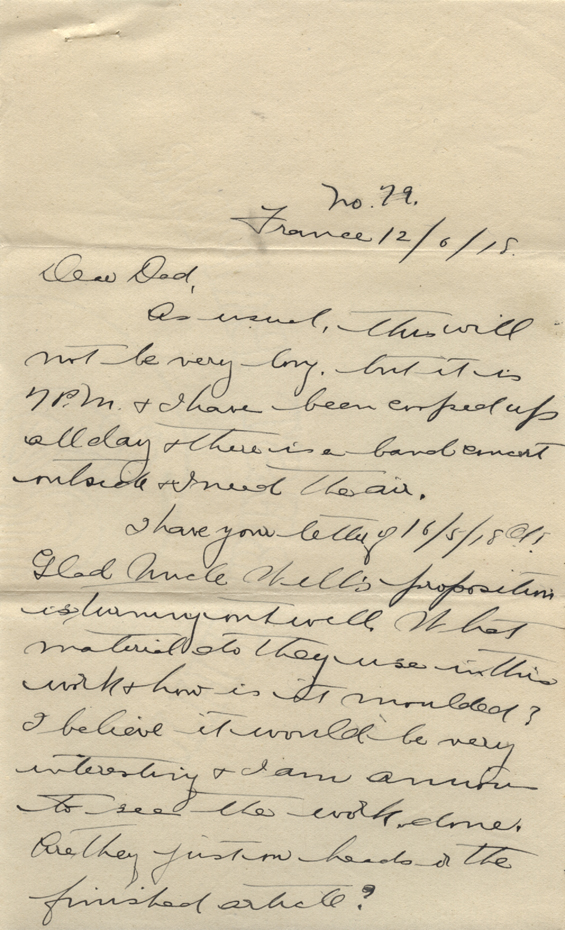 No. 79.
France 12/6/18.
Dear Dad,
As usual, this will
not be very long. but it is
7 P.M. & I have been cooped up
all day & there is a band concert
outside & I need the air.
I have your letter of 16/5/18
Glad Uncle Will's proposition
is turning out well. What
material do they use in this
work & how is it moulded?
I believe it would be very
interesting & I am anxious
to see the work done.
Are they just on heads or the
finished article?